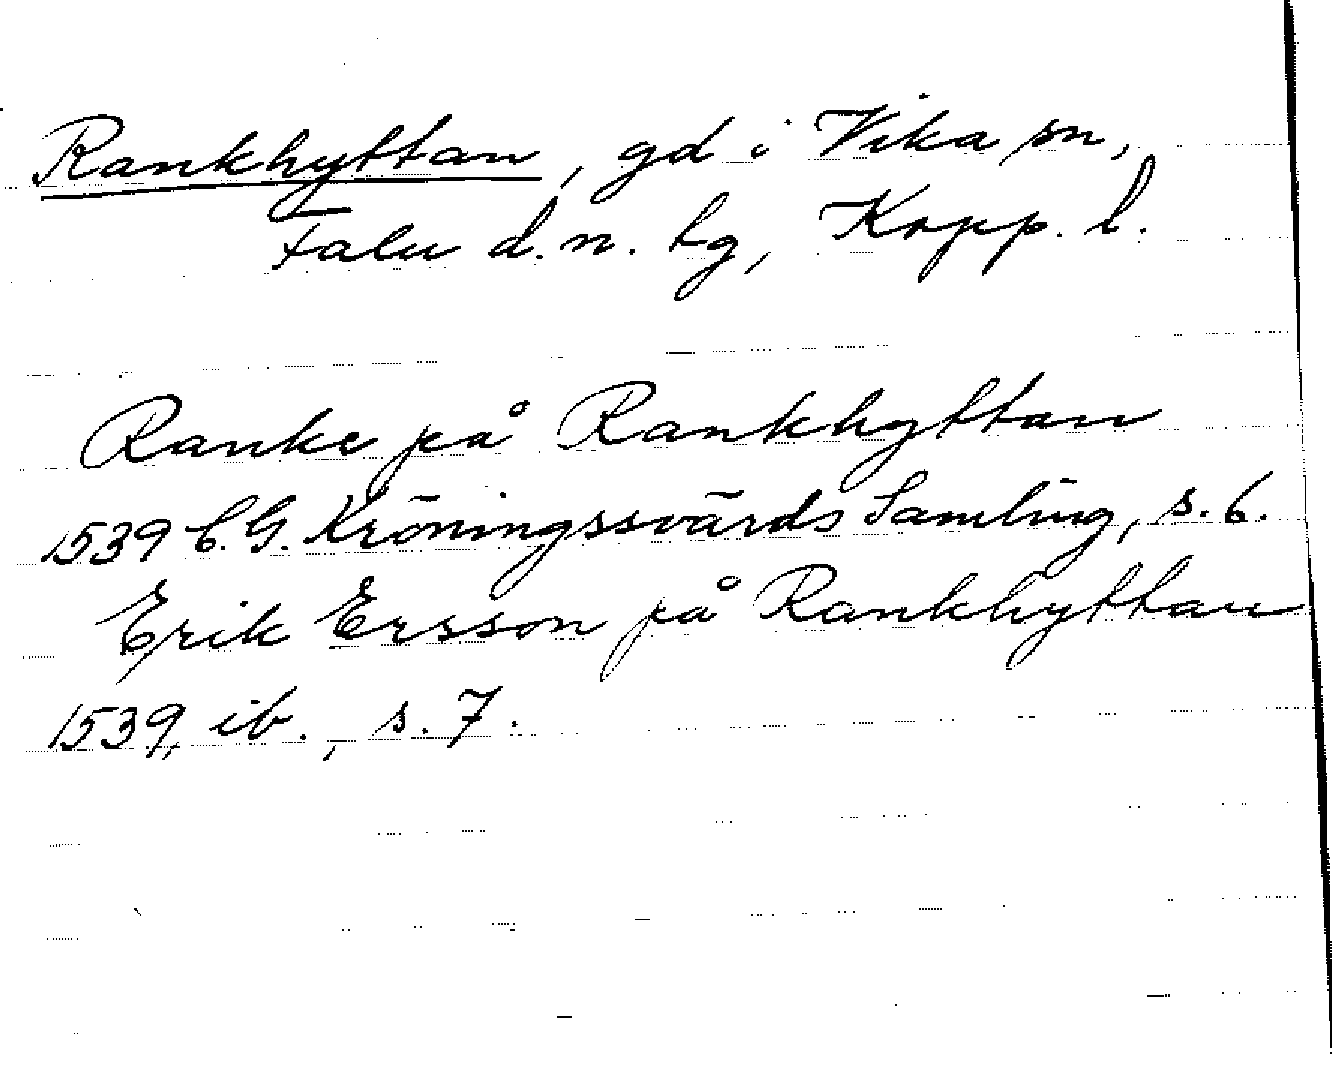 Rankhyttan, gd i Vika sn,
Falu d.n. tg, Kopp. l.
Ranke på Rankhyttan
1539 C.G. Kröningssvärds Samling, s. 6.
Erik Ersson på Rankhyttan
1539, ib., s. 7.